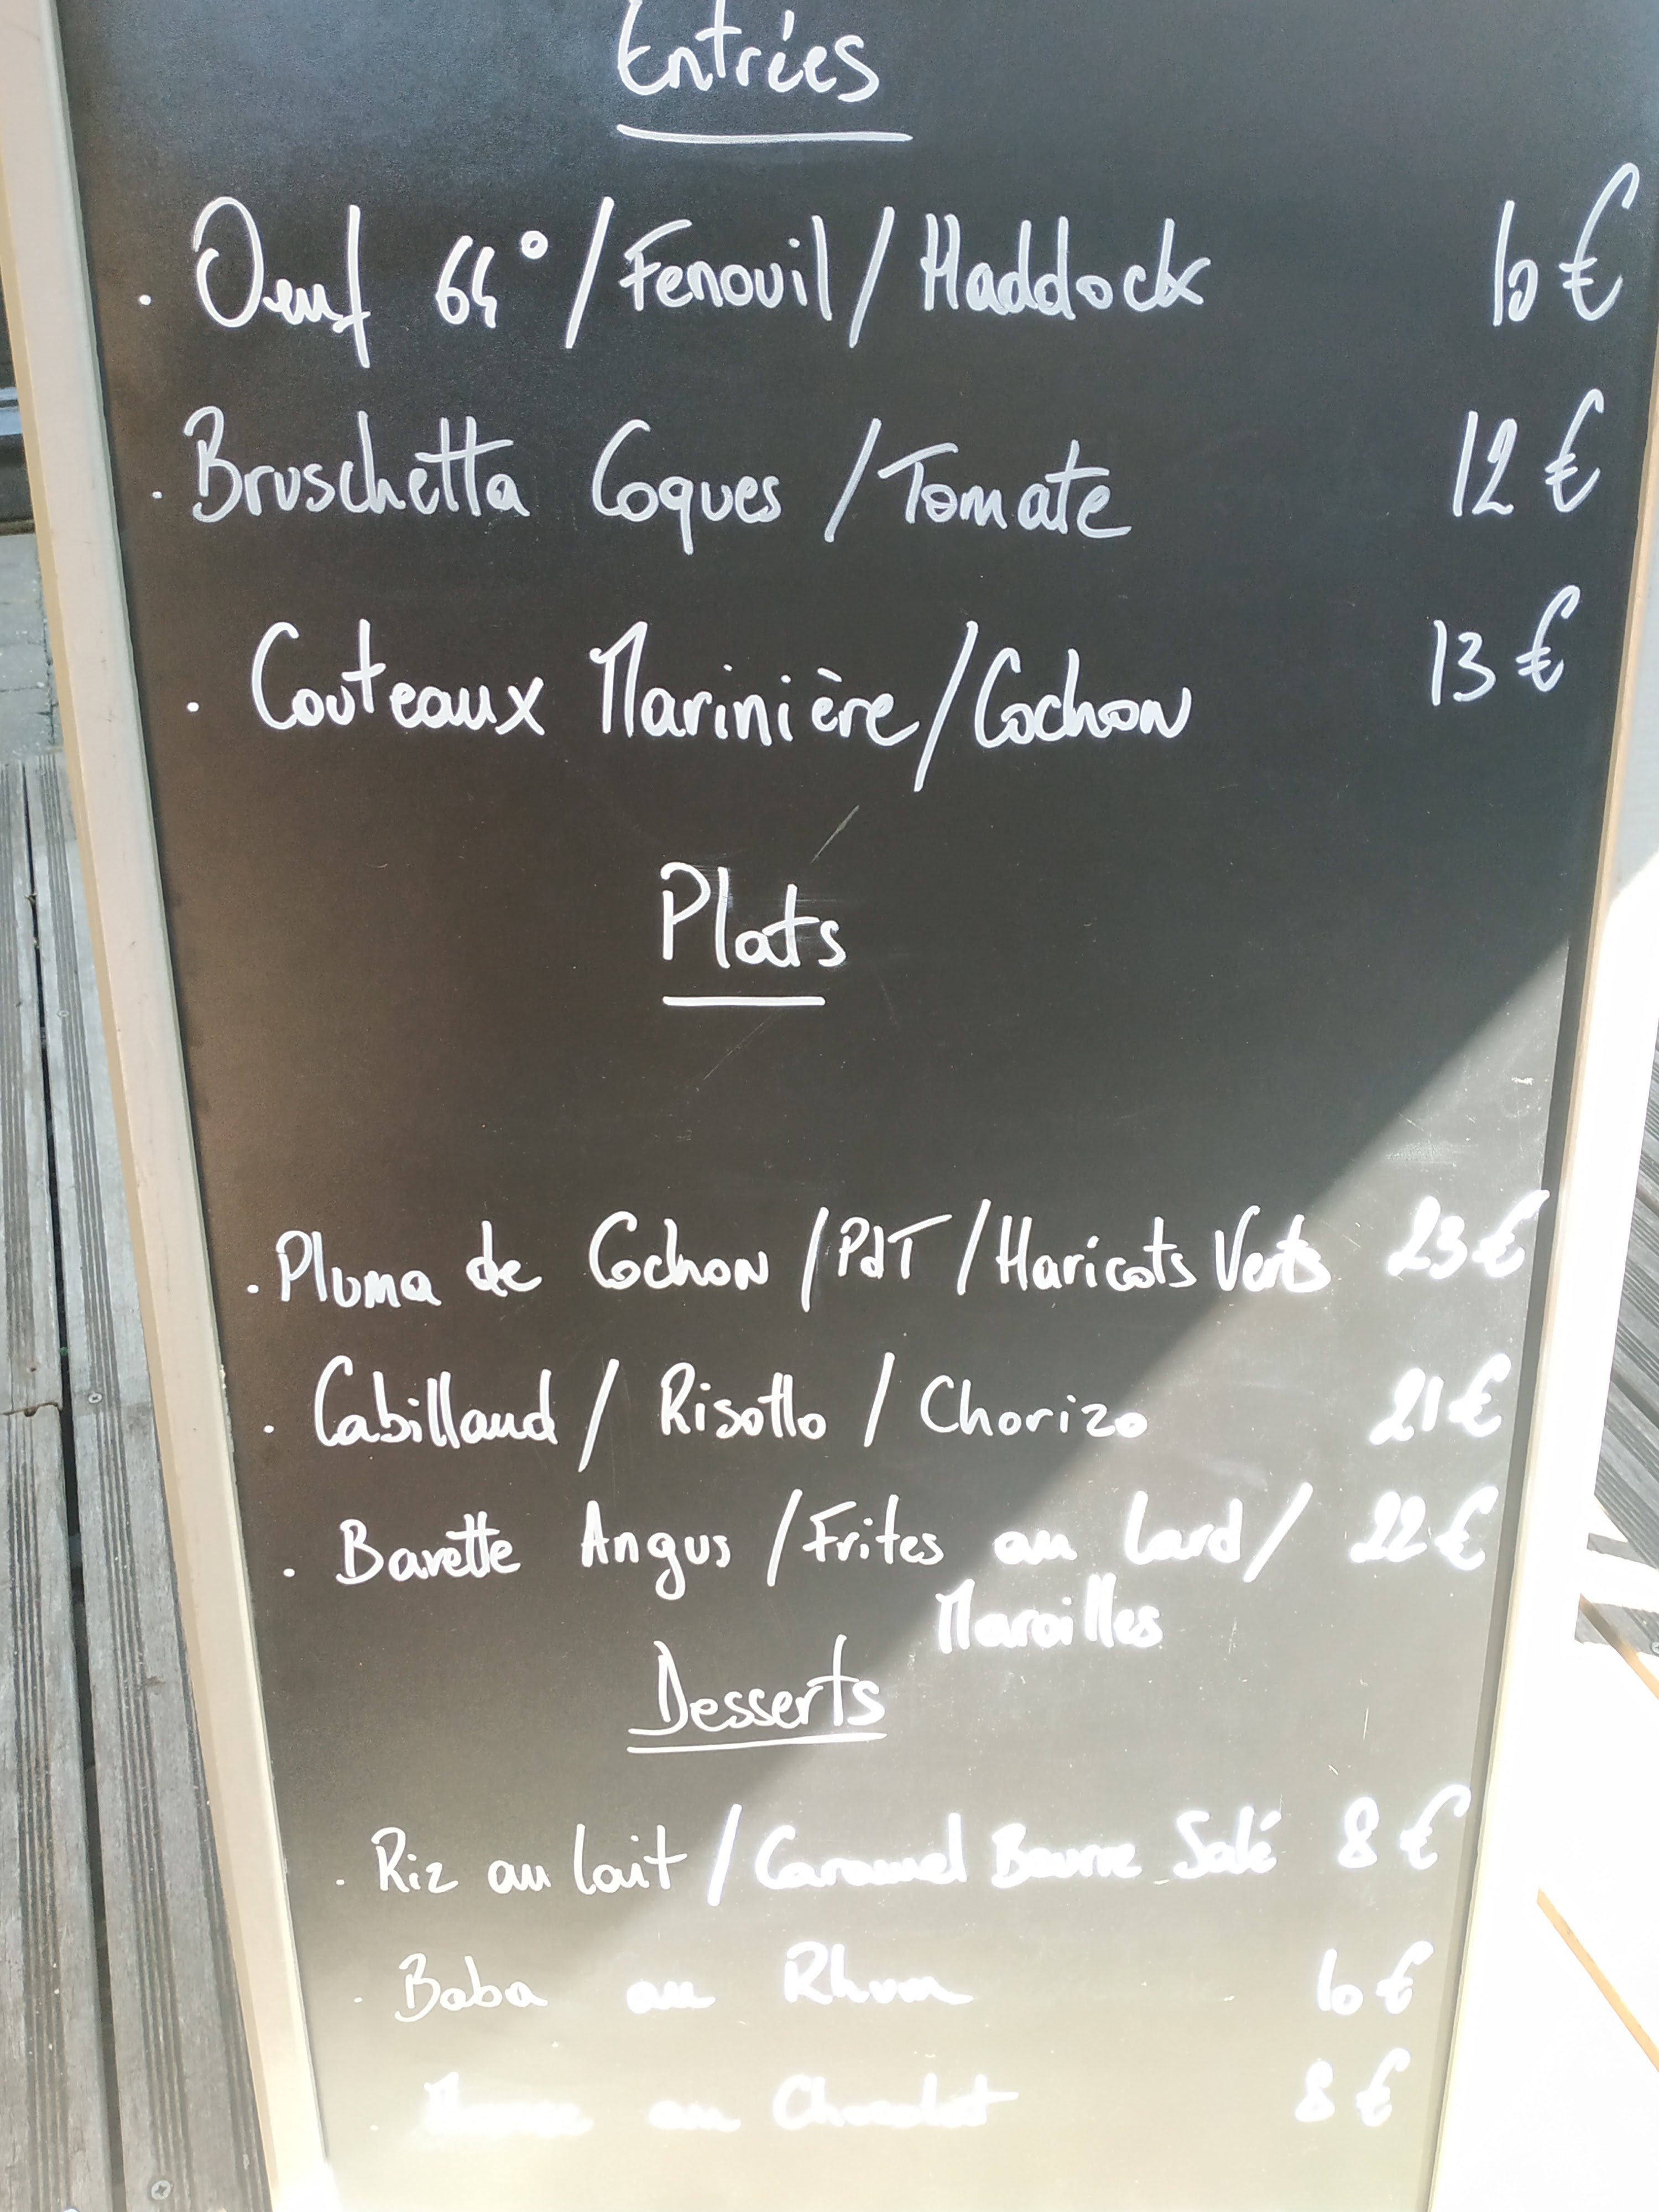 Entrées
. Oeuf 64° / Fenouil / Haddock 10 €
. Bruschetta Coques / Tomate 12 €
. Couteaux Marinière / Cochon 13 €
Plats
. Pluma de Cochon / PdT / Haricots Verts 23 €
. Cabillaud / Risotto / Chorizo 21 €
. Bavette Angus / Frites au Lard / 22 €
Maroilles
Desserts
. Riz au lait / Caramel Beurre Salé 8 €
. Baba au Rhum 10 €
. Mousse au Chocolat 8 €